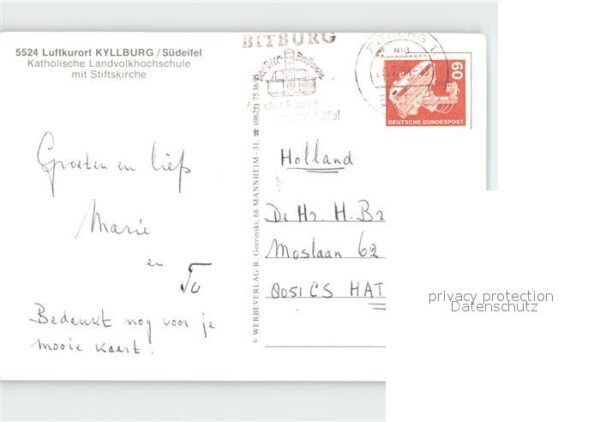 5524 Luftkurort KYLLBURG / Südeifel
Katholische Landvolkhochschule
mit Stiftskirche
BITBURG
BITBURG 1
60
DEUTSCHE BUNDESPOST
Groeten en liefs
Marie
en
Jo
Bedankt nog voor je
mooie kaart.
© WERBEVERLAG R. Gorzinski, 68 MANNHEIM-31, ☎ (0621)
Holland
De Hr. H. Br
Moslaan 62
8051CS HAT
privacy protection
Datenschutz